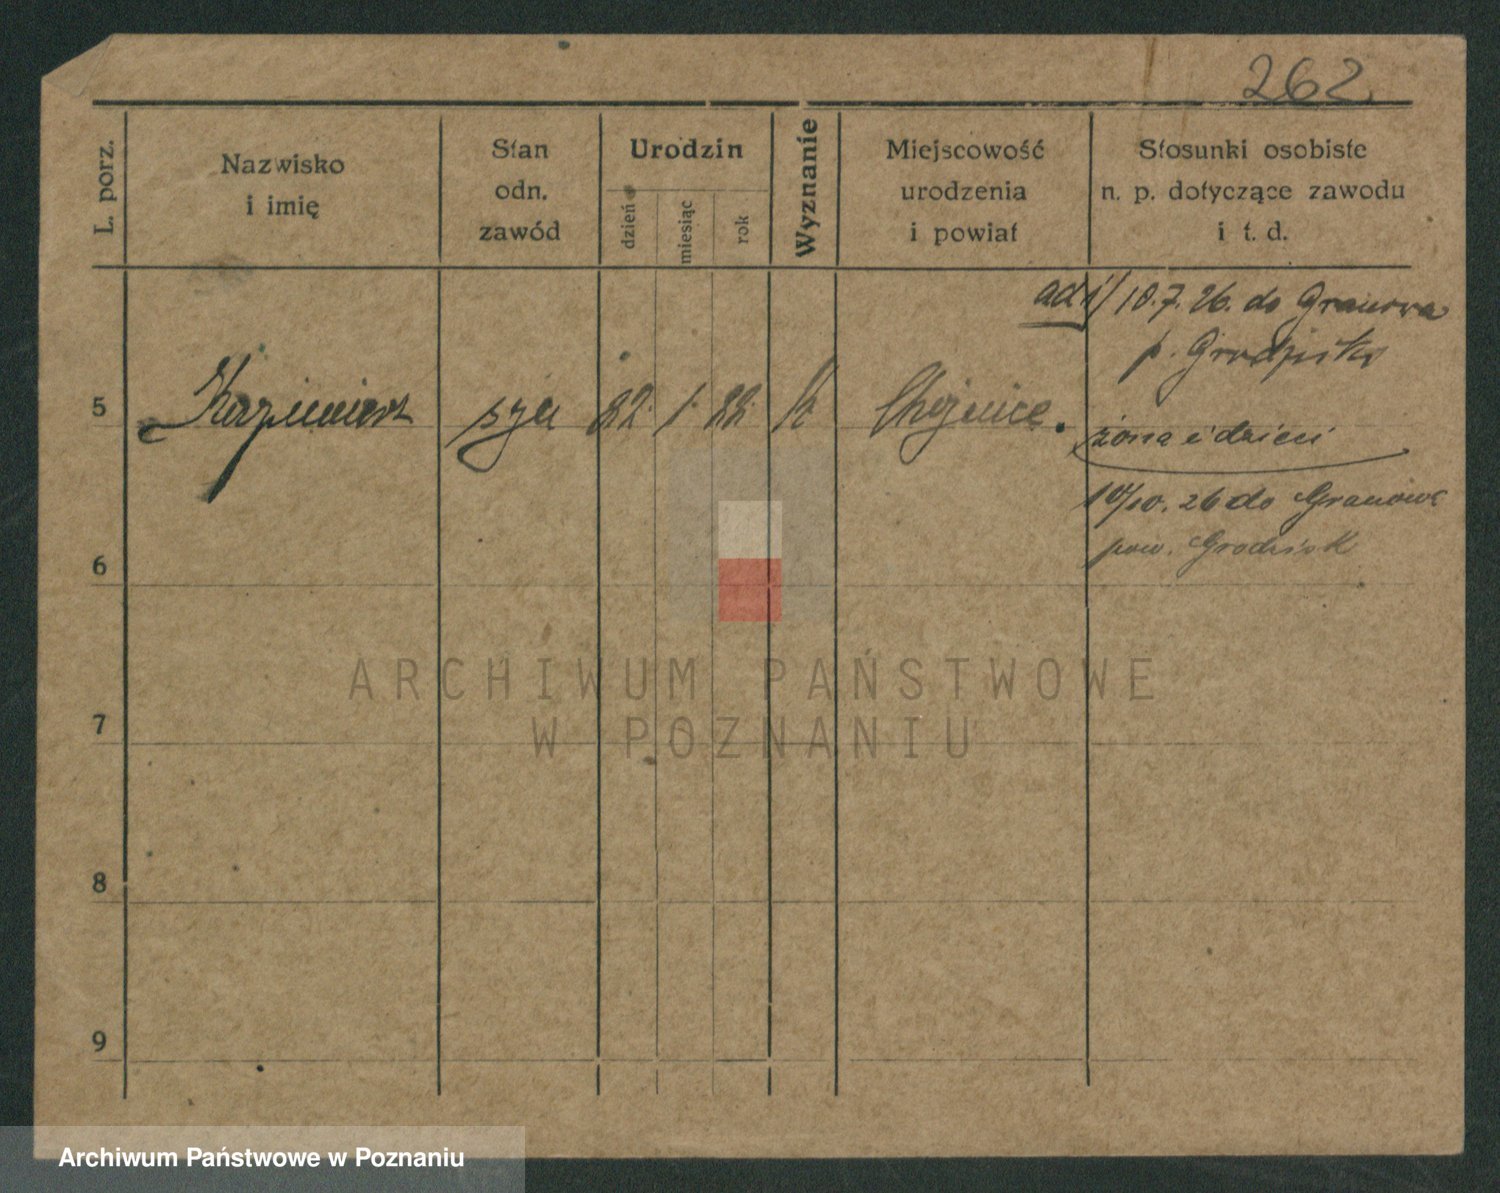 262
L. porz.
Nazwisko
i imię
Stan
odn.
zawód
Urodzin
dzień
miesiąc
rok
Wyznanie
Miejscowość
urodzenia
i powiat
Stosunki osobiste
n. p. dotyczące zawodu
i t. d.
ad 1/ 10.7.26. do Granowa
p. Grodzisko
5 Kazimierz syn 22. 1. 22. k Chojnice.
żona i dzieci
10. 26 do Granowa
pow. Grodzisk
6
7
8
9
ARCHIWUM PAŃSTWOWE
W POZNANIU
Archiwum Państwowe w Poznaniu